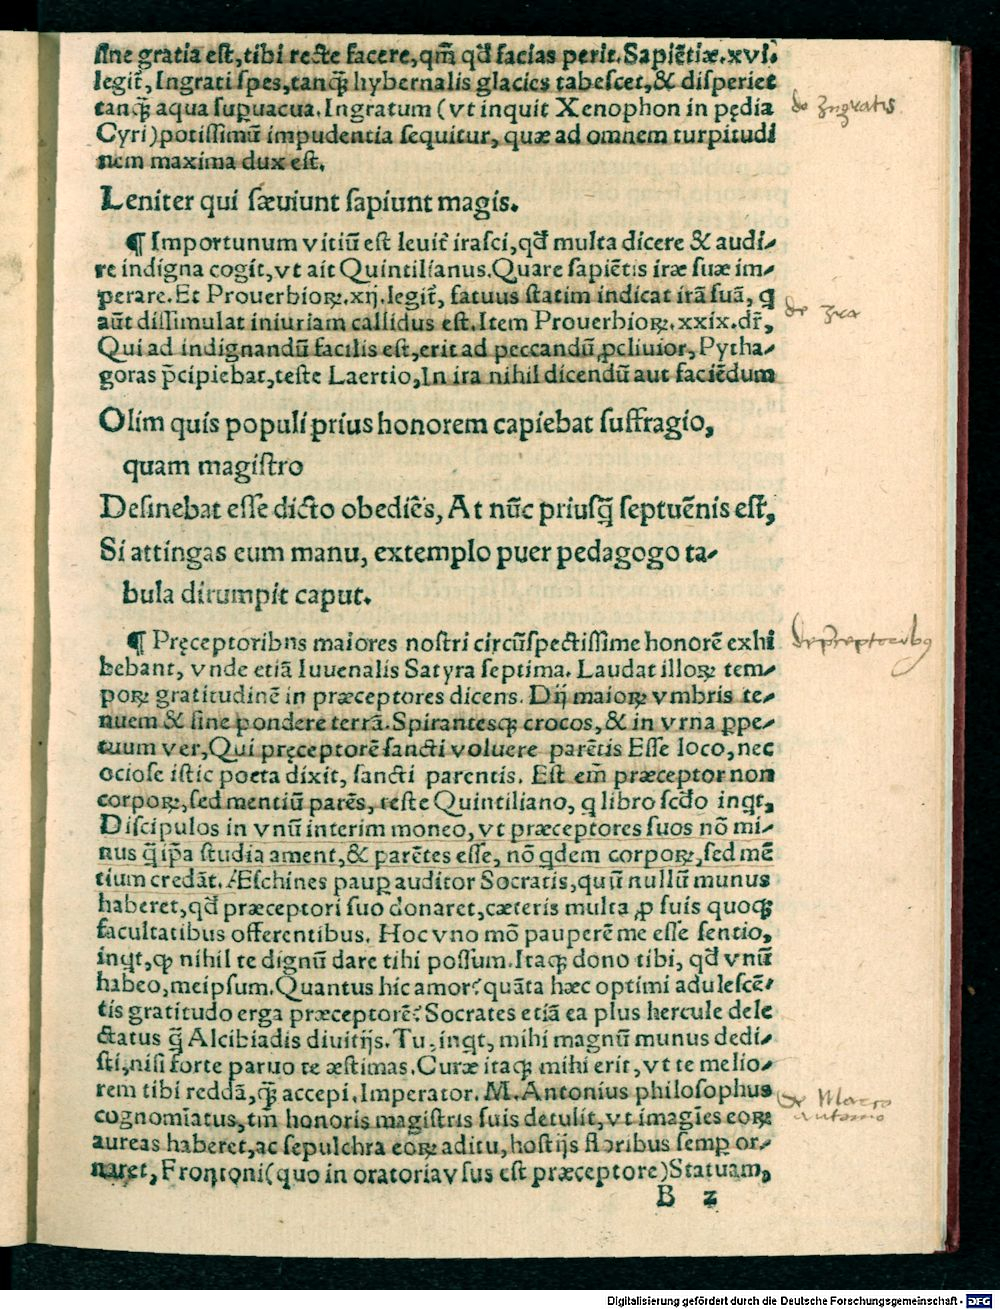 ſine gratia eſt, tibi recte facere, qm̃ qd̃ facias perit. Sapiẽtiæ. xvi.
legit᷑, Ingrati ſpes, tanq̃ hybernalis glacies tabeſcet, & diſperiet
tanq̃ aqua ſuꝑuacua. Ingratum (vt inquit Xenophon in pędia
Cyri) potiſſimũ impudentia ſequitur, quæ ad omnem turpitudi
nem maxima dux eſt.
Leniter qui ſæuiunt ſapiunt magis.
¶ Importunum vitiũ eſt leuit᷑ iraſci, qd̃ multa dicere & audi⸗
re indigna cogit, vt ait Quintilianus. Quare ſapiẽtis iræ ſuæ im⸗
perare. Et Prouerbioꝝ. xij. legit᷑, fatuus ſtatim indicat irã ſuã, q
aũt diſſimulat iniuriam callidus eſt. Item Prouerbioꝝ. xxix. dr̃,
Qui ad indignandũ facilis eſt, erit ad peccandũ ꝓcliuior, Pytha⸗
goras p̃cipiebat, teſte Laertio, In ira nihil dicendũ aut faciẽdum
Olim quis populi prius honorem capiebat ſuffragio,
quam magiſtro
Deſinebat eſſe dicto obediẽs, At nũc priuſq̃ ſeptuẽnis eſt,
Si attingas eum manu, extemplo puer pedagogo ta⸗
bula dirumpit caput.
¶ Pręceptoribus maiores noſtri circũſpectiſſime honorẽ exhi
bebant, vnde etiã Iuuenalis Satyra ſeptima. Laudat illoꝝ tem⸗
poꝝ gratitudinẽ in præceptores dicens. Dij maioꝝ vmbris te⸗
nuem & ſine pondere terrã. Spirantesqꝫ crocos, & in vrna ꝑpe⸗
tuum ver, Qui pręceptorẽ ſancti voluere parẽtis Eſſe loco, nec
ocioſe iſtic poeta dixit, ſancti parentis. Eſt em̃ præceptor non
corpoꝝ, ſed mentiũ parẽs, teſte Quintiliano, q libro ſcd̃o inqt,
Diſcipulos in vnũ interim moneo, vt præceptores ſuos nõ mi⸗
nus q̃ ip̃a ſtudia ament, & parẽtes eſſe, nõ qdem corpoꝝ, ſed mẽ
tium credãt. Æſchines pauꝑ auditor Socratis, quũ nullũ munus
haberet, qd̃ præceptori ſuo donaret, cæteris multa ꝓ ſuis quoqꝫ
facultatibus offerentibus. Hoc vno mõ pauperẽ me eſſe ſentio,
inqt, ꝙ nihil te dignũ dare tibi poſſum. Itaqꝫ dono tibi, qd̃ vnũ
habeo, meipſum. Quantus hic amor? quãta hæc optimi aduleſcẽ⸗
tis gratitudo erga præceptorẽ? Socrates etiã ea plus hercule dele
ctatus q̃ Alcibiadis diuitijs. Tu, inqt, mihi magnũ munus dedi⸗
ſti, niſi forte paruo te æſtimas. Curæ itaqꝫ mihi erit, vt te melio⸗
rem tibi reddã, q̃ accepi. Imperator. M. Antonius philoſophus
cognomĩatus, tm̃ honoris magiſtris ſuis detulit, vt imagĩes eoꝝ
aureas haberet, ac ſepulchra eoꝝ aditu, hoſtijs floribus ſemꝑ or⸗
naret, Frontoni (quo in oratoria vſus eſt præceptore) Statuam,
B 2
de Ingratis
de Ira
de preceptoribus
de Marco
antonio
Digitalisierung gefördert durch die Deutsche Forschungsgemeinschaft - DFG